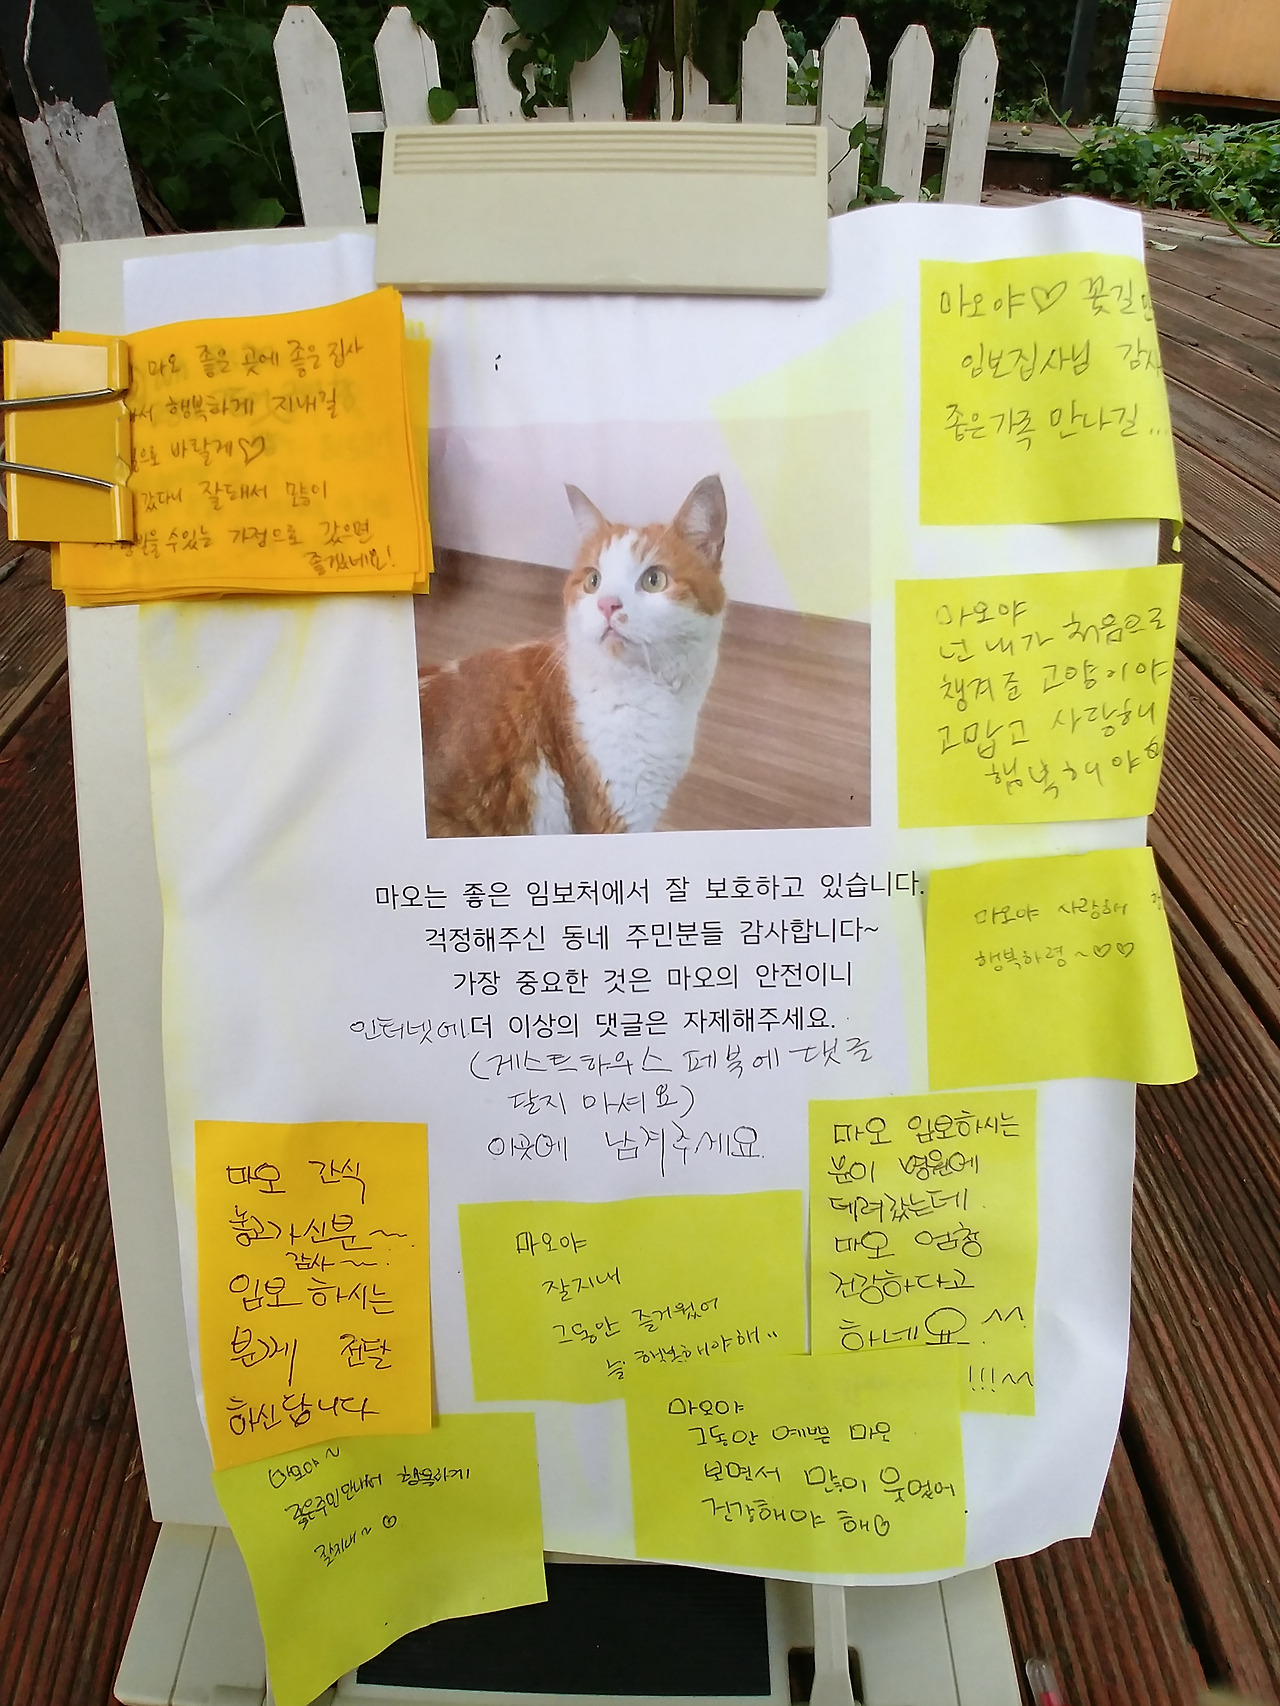 마오 좋은 곳에 좋은 집사
행복하게 지내길
바랄게♡
갔다니 잘돼서 많이
받을 수 있는 가정으로 갔으면
좋겠네요!
마오야♡ 꽃길만
임보집사님 감사
좋은가족 만나길...
마오야
넌 내가 처음으로
챙겨준 고양이야
고맙고 사랑해
행복해야♡
마오는 좋은 임보처에서 잘 보호하고 있습니다.
걱정해주신 동네 주민분들 감사합니다~
가장 중요한 것은 마오의 안전이니
인터넷에 더 이상의 댓글은 자제해주세요.
(게스트하우스 페북에 댓글
달지 마셔요)
이곳에 남겨주세요.
마오야 사랑해
행복하렴~♡♡
마오 간식
놓고가신분~
감사~.
임보 하시는
분께 전달
하신답니다
마오야
잘지내
그동안 즐거웠어
늘 행복해야해..
마오 임보하시는
분이 병원에
데려갔는데.
마오 엄청
건강하다고
하네요^^
!!!^^
마오야~
좋은주인만나서 행복하게
잘지내~♡
마오야
그동안 예쁜 마오
보면서 많이 웃었어
건강해야 해♡